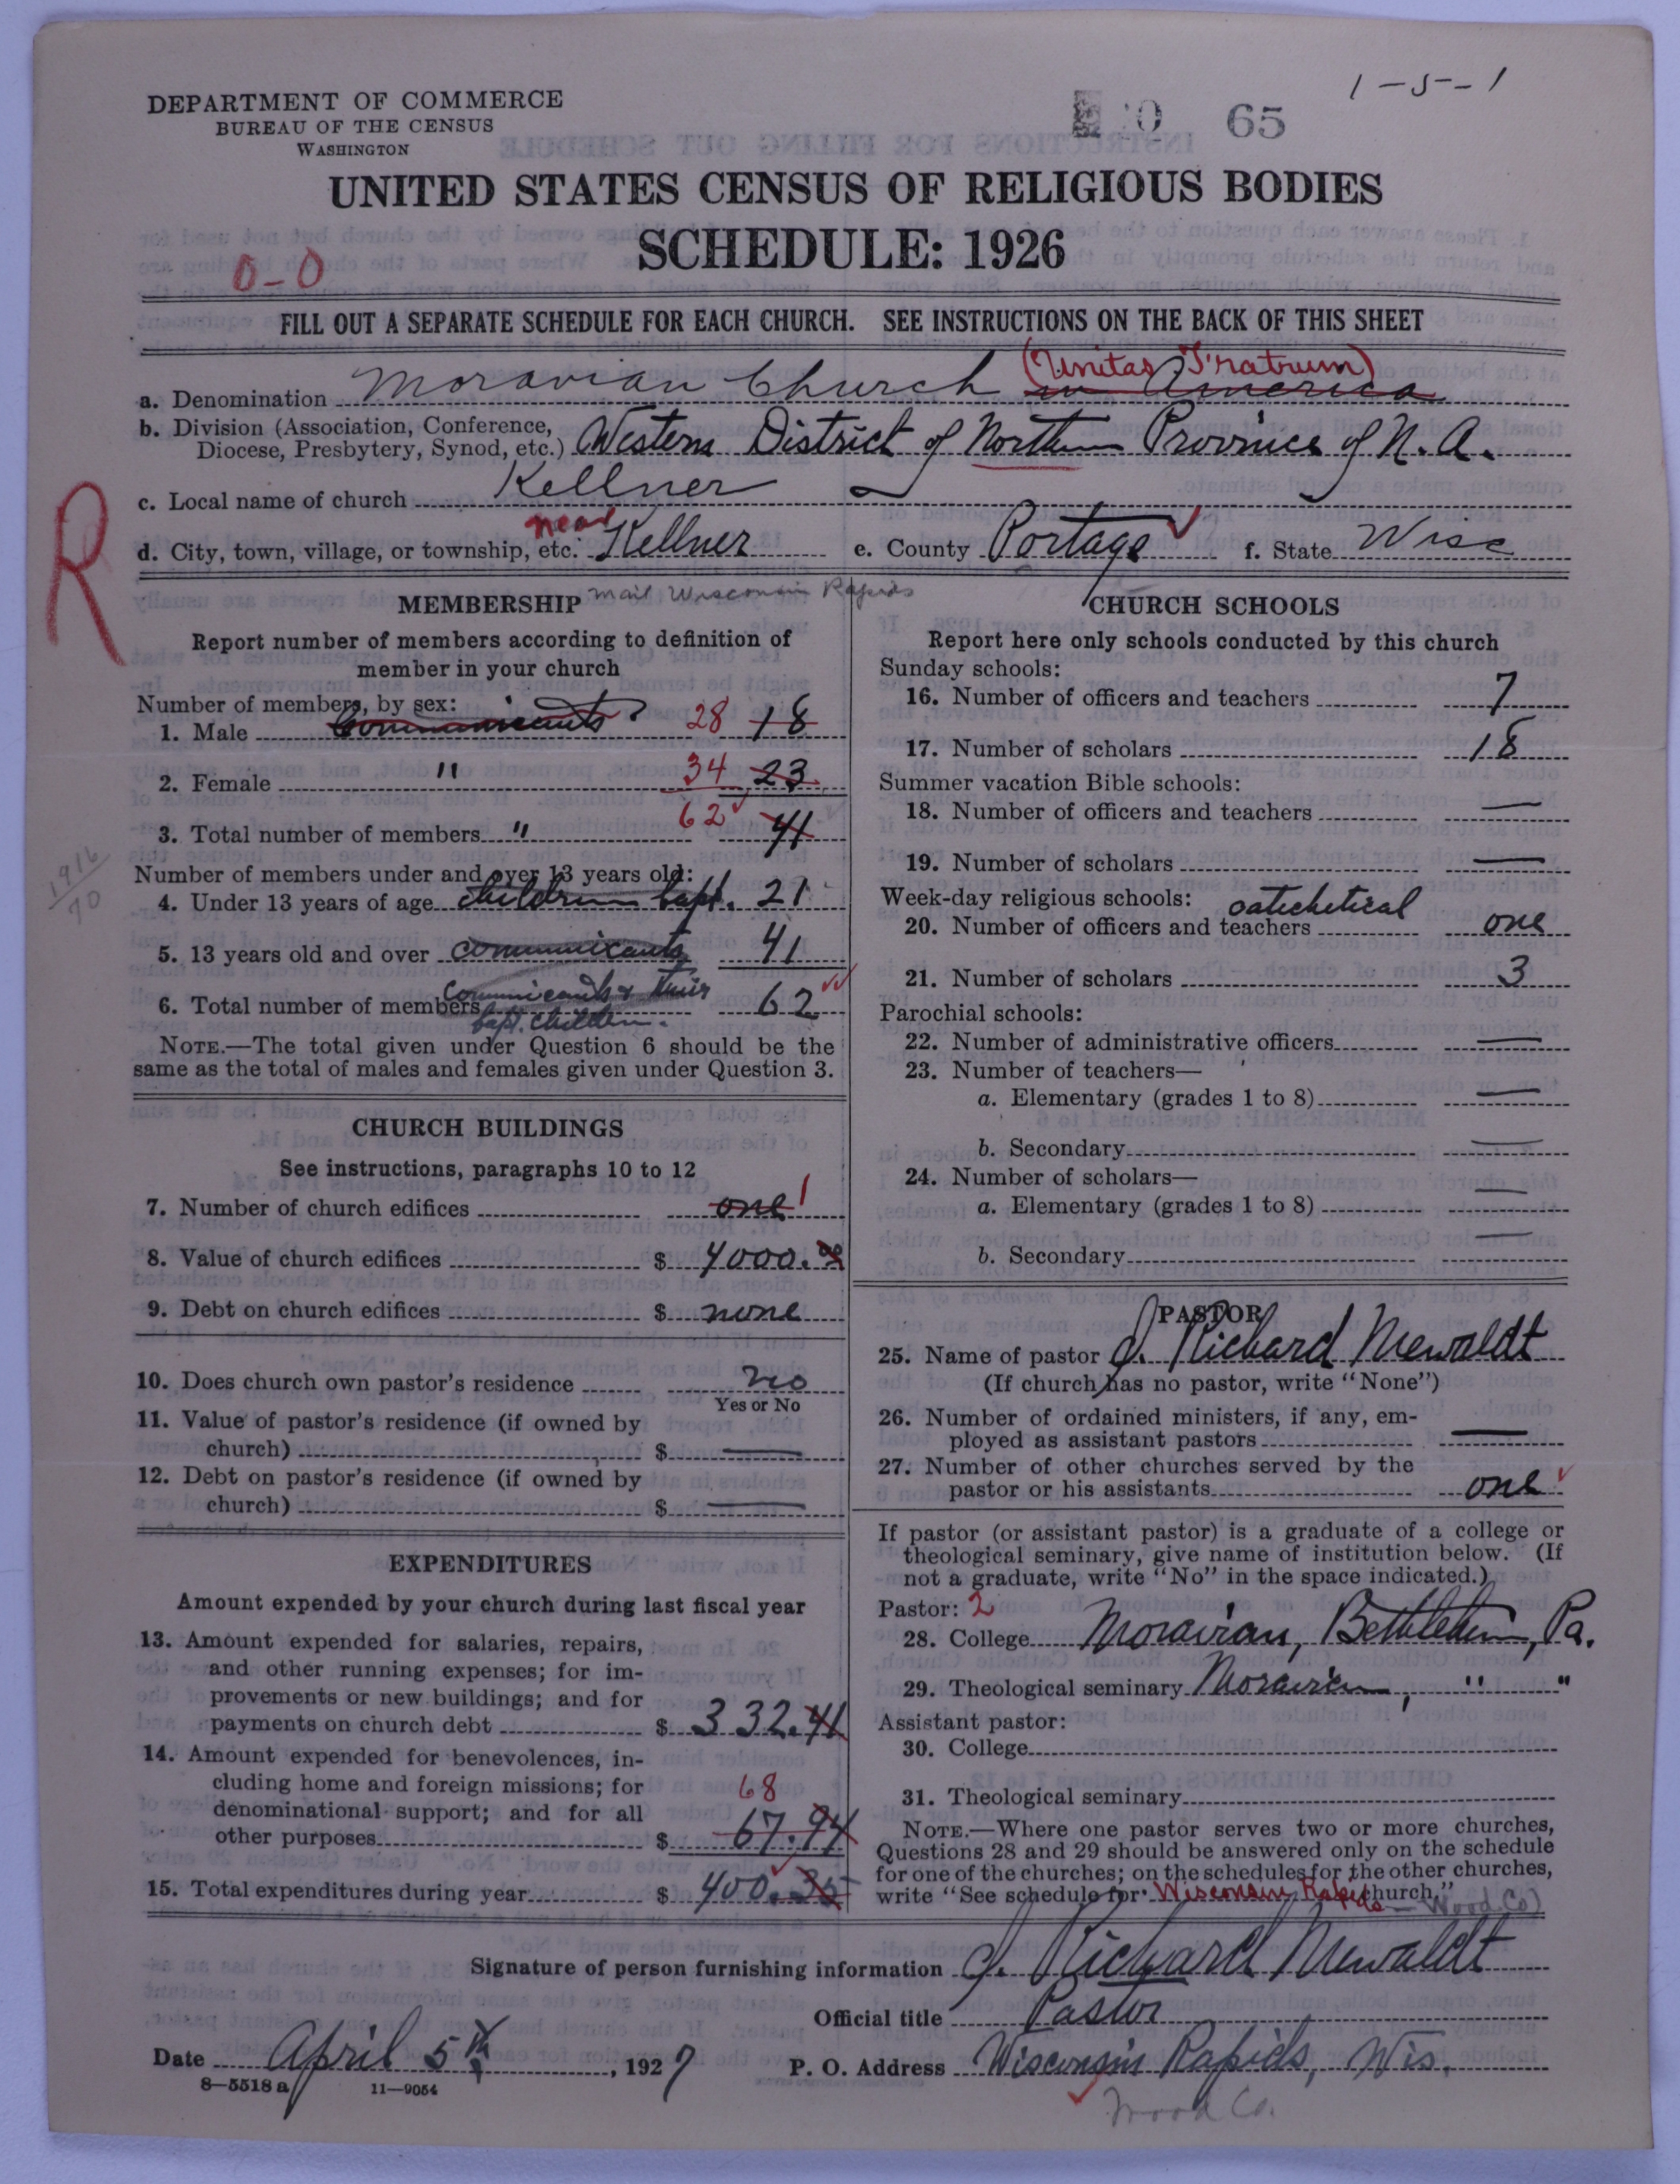 1-5-1
DEPARTMENT OF COMMERCE
BUREAU OF THE CENSUS
WASHINGTON
65
UNITED STATES CENSUS OF RELIGIOUS BODIES
SCHEDULE: 1926
0-0
FILL OUT A SEPARATE SCHEDULE FOR EACH CHURCH. SEE INSTRUCTIONS ON THE BACK OF THIS SHEET
(Unitas Fratrum)
a. Denomination Moravian Church in America
b. Division (Association, Conference,
Diocese, Presbytery, Synod, etc.) Western District of Northern Province of N. A.
c. Local name of church Kellner
R
near
d. City, town, village, or township, etc. Kellner e. County Portage f. State Wisc
mail Wisconsin Rapids
MEMBERSHIP
Report number of members according to definition of
member in your church
Number of members, by sex:
1. Male Communicants? 28 18
2. Female " 34 23
3. Total number of members " 62 41
1916
70
Number of members under and over 13 years old:
4. Under 13 years of age children bapt. 21
5. 13 years old and over communicants 41
6. Total number of members communicants & their 62
bapt. children.
NOTE.—The total given under Question 6 should be the
same as the total of males and females given under Question 3.
CHURCH BUILDINGS
See instructions, paragraphs 10 to 12
7. Number of church edifices one 1
8. Value of church edifices $ 4000.00
9. Debt on church edifices $ none
10. Does church own pastor's residence no
Yes or No
11. Value of pastor's residence (if owned by
church) $ —
12. Debt on pastor's residence (if owned by
church) $ —
EXPENDITURES
Amount expended by your church during last fiscal year
13. Amount expended for salaries, repairs,
and other running expenses; for im-
provements or new buildings; and for
payments on church debt $ 332.41
14. Amount expended for benevolences, in-
cluding home and foreign missions; for
denominational support; and for all 68
other purposes $ 67.94
15. Total expenditures during year $ 400.35
CHURCH SCHOOLS
Report here only schools conducted by this church
Sunday schools:
16. Number of officers and teachers 7
17. Number of scholars 18
Summer vacation Bible schools:
18. Number of officers and teachers —
19. Number of scholars —
Week-day religious schools: catechetical
20. Number of officers and teachers one
21. Number of scholars 3
Parochial schools:
22. Number of administrative officers —
23. Number of teachers—
a. Elementary (grades 1 to 8) —
b. Secondary —
24. Number of scholars—
a. Elementary (grades 1 to 8) —
b. Secondary —
PASTOR
25. Name of pastor J. Richard Mewaldt
(If church has no pastor, write "None")
26. Number of ordained ministers, if any, em-
ployed as assistant pastors —
27. Number of other churches served by the
pastor or his assistants one
If pastor (or assistant pastor) is a graduate of a college or
theological seminary, give name of institution below. (If
not a graduate, write "No" in the space indicated.)
Pastor: 2
28. College Moravian, Bethlehem, Pa.
29. Theological seminary Moravian, " "
Assistant pastor:
30. College
31. Theological seminary
NOTE.—Where one pastor serves two or more churches,
Questions 28 and 29 should be answered only on the schedule
for one of the churches; on the schedules for the other churches,
write "See schedule for Wisconsin Rapids church."
— Wood Co)
Signature of person furnishing information J. Richard Mewaldt
Official title Pastor
Date April 5th, 1927 P. O. Address Wisconsin Rapids, Wis.
8—5518 a 11—9054
Wood Co.